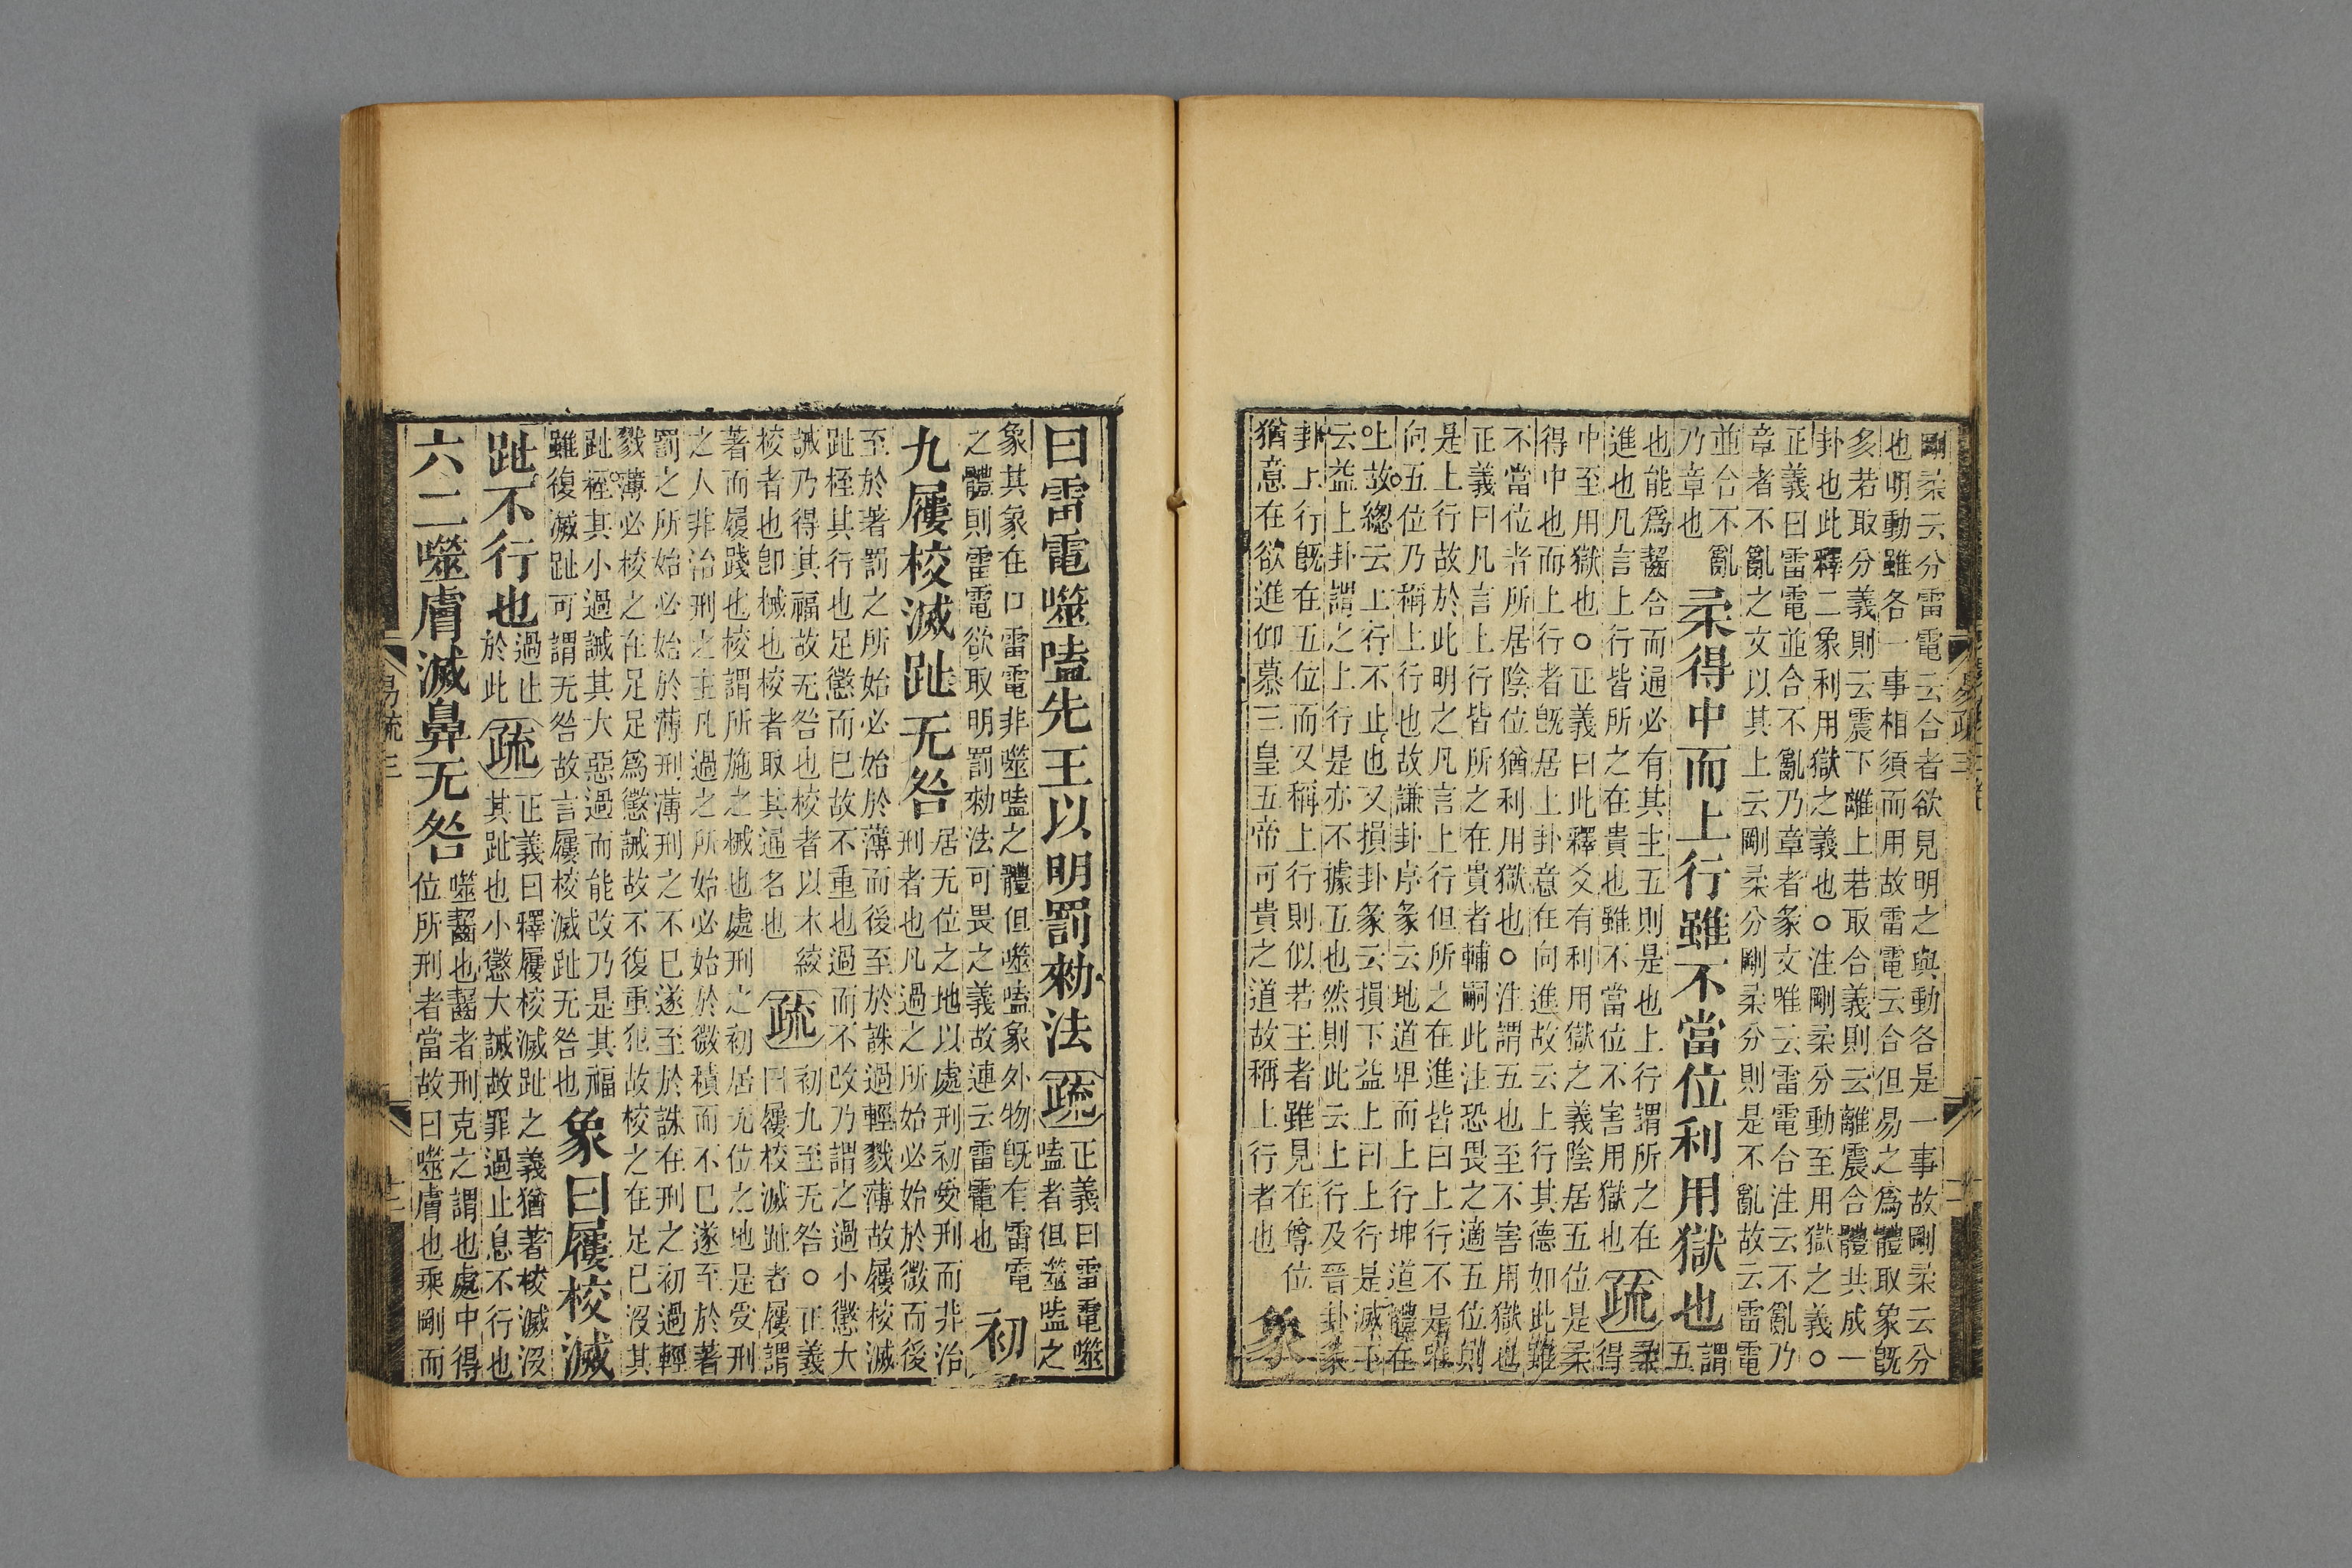 剛柔云分雷電云合者欲見明之與動各是一事故剛柔云分
也明動雖各一事相須而用故雷電云合但易之爲體取象既
多若取分義則云震下離上若取合義則云離震合體共成一
卦也此釋二象利用獄之義也○注剛柔分動至用獄之義○
正義曰雷電並合不亂乃章者彖文唯云雷電合注云不亂乃
章者不亂之文以其上云剛柔分剛柔分則是不亂故云雷電
並合不亂
乃章也
柔得中而上行雖不當位利用獄也
謂
五
也能爲齧合而通必有其主五則是也上行謂所之在
進也凡言上行皆所之在貴也雖不當位不害用獄也
疏
柔
得
中至用獄也○正義曰此釋爻有利用獄之義陰居五位是柔
得中也而上行者既居上卦意在向進故云上行其德如此雖
不當位者所居陰位猶利用獄也○注謂五也至不害用獄也
正義曰凡言上行皆所之在貴者輔嗣此注恐畏之適五位則
是上行故於此明之凡言上行但所之在進皆曰上行不是唯
向五位乃稱上行也故謙卦序彖云地道卑而上行坤道體在
上故總云上行不止也又損卦彖云損下益上曰上行是減下
云益上卦謂之上行是亦不據五也然則此云上行及晉卦彖
卦上行既在五位而又稱上行則似若王者雖見在尊位
猶意在欲進仰慕三皇五帝可貴之道故稱上行者也
象
曰雷電噬嗑先王以明罰勑法
疏
正義曰雷電噬
嗑者但噬嗑之
象其象在口雷電非噬嗑之體但噬嗑象外物既有雷電
之體則雷電欲取明罰勑法可畏之義故連云雷電也
初
九屨校滅趾无咎
居无位之地以處刑初受刑而非治
刑者也凡過之所始必始於微而後
至於著罰之所始必始於薄而後至於誅過輕戮薄故屨校滅
趾桎其行也足懲而已故不重也過而不改乃謂之過小懲大
誡乃得其福故无咎也校者以木絞
校者也卽械也校者取其通名也
疏
初九至无咎○正義
曰屨校滅趾者屨謂
著而履踐也校謂所施之械也處刑之初居无位之地是受刑
之人非治刑之主凡過之所始必始於微積而不已遂至於著
罰之所始必始於薄刑薄刑之不已遂至於誅在刑之初過輕
戮薄必校之在足足爲懲誡故不復重犯故校之在足已沒其
趾桎其小過誡其大惡過而能改乃是其福
雖復滅趾可謂无咎故言屨校滅趾无咎也
象曰屨校滅
趾不行也
過止
於此
疏
正義曰釋屨校滅趾之義猶著校滅沒
其趾也小懲大誡故罪過止息不行也
六二噬膚滅鼻无咎
噬齧也齧者刑克之謂也處中得
位所刑者當故曰噬膚也乘剛而
易疏三
易疏三